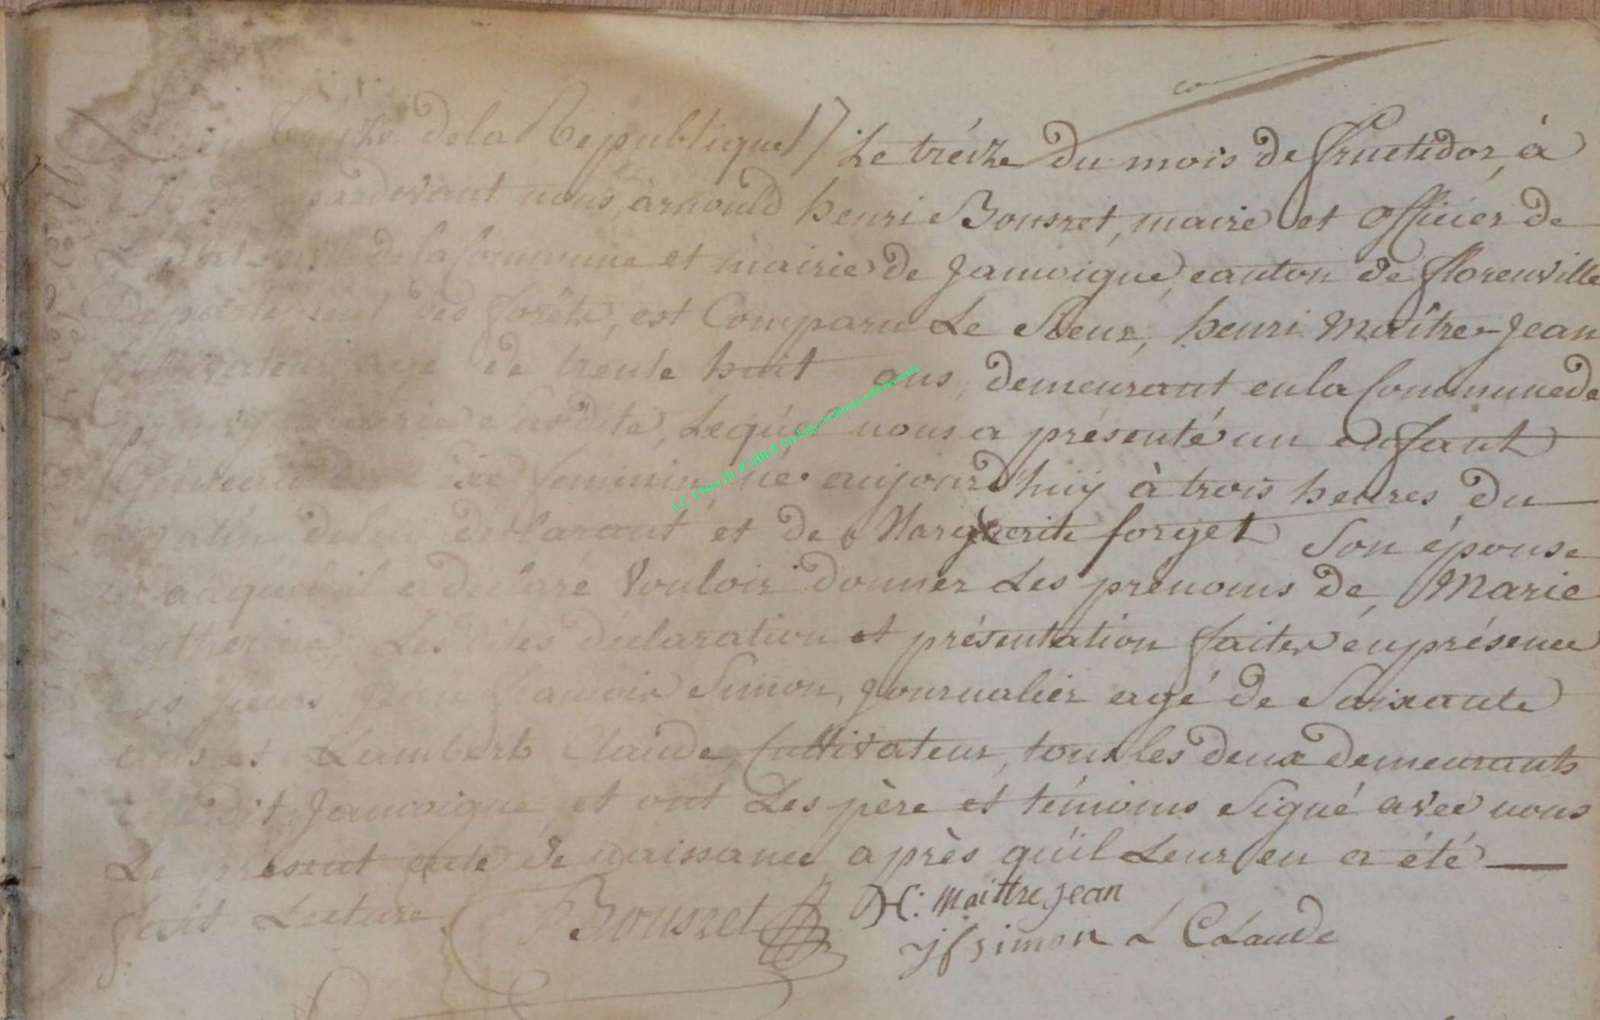 de la Republique // Le treize du mois de fructidor, à
pardevant nous, arnould henri Bousret, maire et officier de
de la Commune et mairie de Jamoigne, canton de florenville
Departement des forêts, est Comparu Le Sieur, henri Maître-Jean
agé de trente huit ans, demeurant en la Commune de
Lequel nous a présenté un enfant
feminin né aujourd'huy à trois heures du
matin de lui déclarant et de Marguerite forget Son épouse
auquel il a declaré Vouloir donner Les prenoms de, Marie
Catherine, Les dites declaration et présentation faites en présence
Jean francois Simon, Journalier agé de Soixante
ans et Lambert Claude, Cultivateur, tous les deux demeurants
dit Jamoigne, et ont Les père et témoins Signé avec nous
Le présent acte de naissance après qu'il Leur en a été
fait Lecture Bousret H: Maittre Jean
jfsimon L CLaude